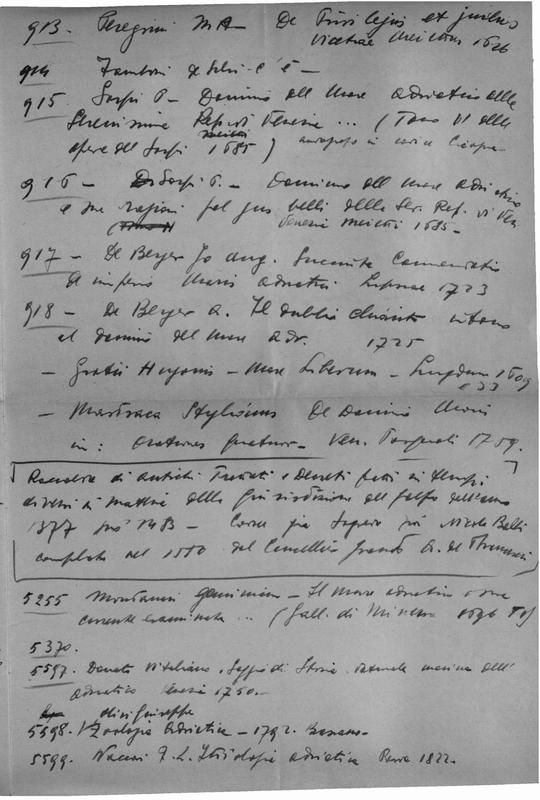 913. Peregrini M.A. De Privilegiis et juribus
Venetiae Meietti 1626
914 Zamboni de
915. Sarpi P. - Dominio del Mare Adriatico della
Serenissima Repub. Venezia ... (Tomo VI delle
opere del Sarpi Meietti 1685)
916 - Sarpi P. - Dominio del mare Adriatico
e sue ragioni pel jus belli della Ser. Rep. di Ven
Venezia Meietti 1685 -
917 - De Beyer Jo Aug. Succinta Commentatio
de imperio Maris Adriatici Lipsiae 1723
918 - De Beyer A. Il dubbio chiarito intorno
al dominio del Mare Adr. 1725
- Grotii Hugonis - Mare Liberum - Lugdum 1609
- Mastraca Stylianus De Dominio Maris
in: orationes quatuor - Ven. Pasquali 1759.
Raccolta di antichi Trattati e Decreti fatti in tempi
diversi in materia della giurisdizione del golfo dell'anno
1377 1483 - Nicolò Balbi
compilata nel 1550 dal Cancellier grande A. de Franceschi
5255 Montanari Geminian - Il Mare Adriatico e sua
corrente esaminata ... (Gall. di Minerva 1696
5370.
5597. Donati Vitaliano, Saggio di Storia naturale marina dell'
adriatico Venezia 1750. -
Olivi Giuseppe
5598. Zoologia Adriatica - 1792. Bassano
5599. Naccari F. L. Ittiologia adriatica 1822.